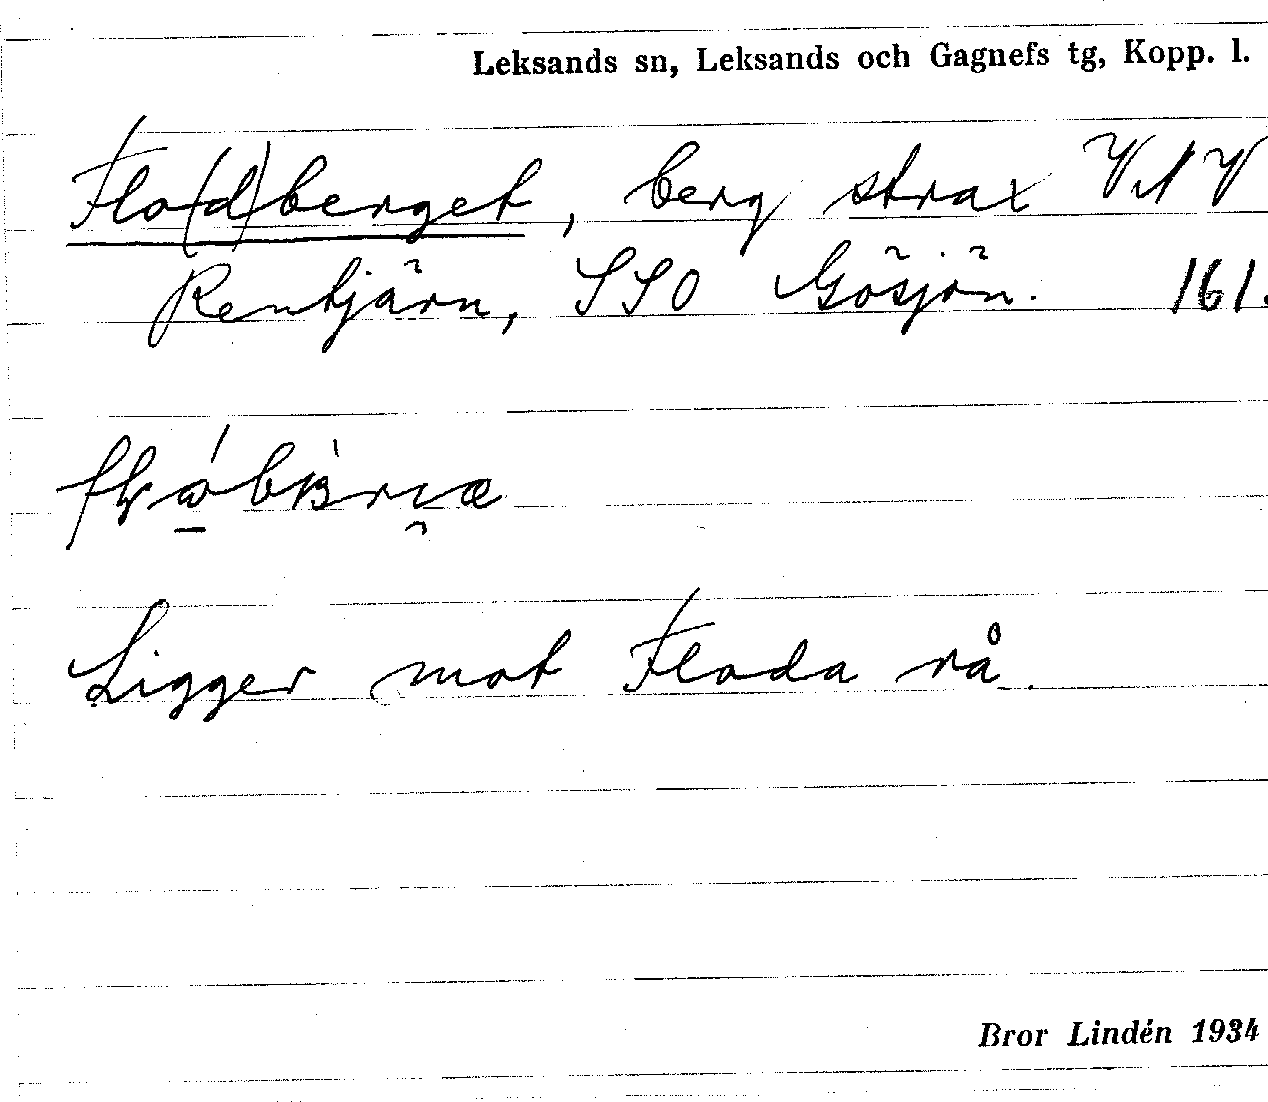 Leksands sn, Leksands och Gagnefs tg, Kopp. l.
Flo(d)berget, berg strax VNV
Rentjärn, SSO Gösjön. 161.
Ligger mot Floda rå.
Bror Lindén 1934